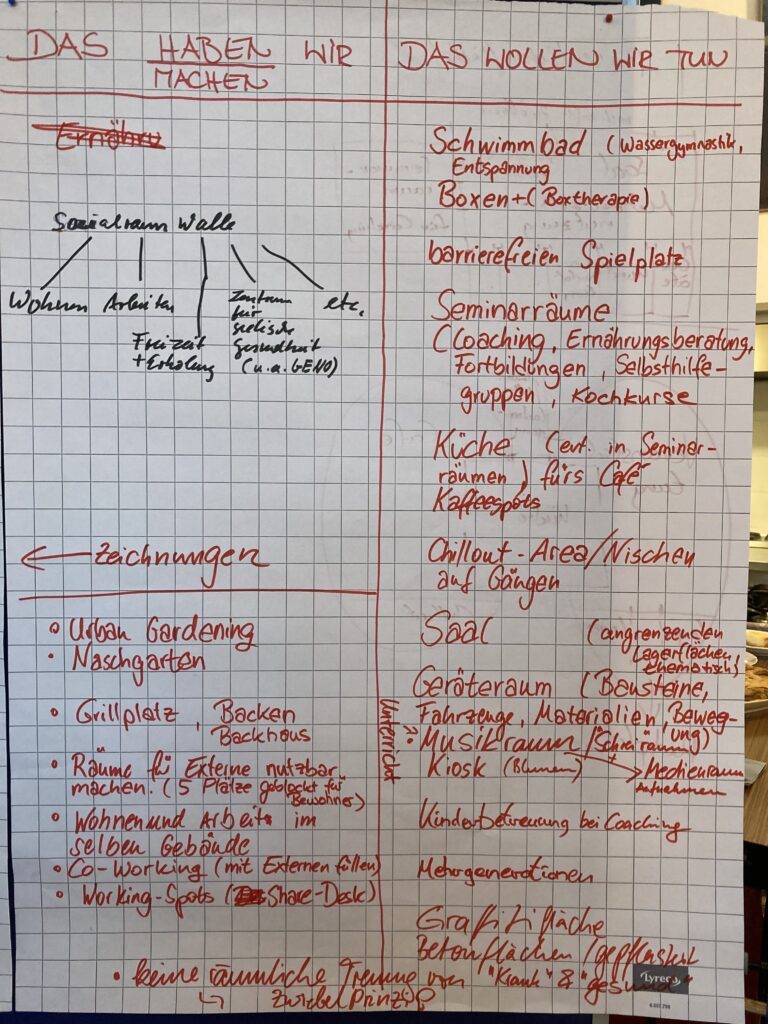 DAS HABEN WIR
MACHEN
Ernähru
Sozialraum Walle
Wohnen Arbeiten
Freizeit
+ Erholung
Zentrum
für
seelische
Gesundheit
(u.a. GENO)
etc.
← Zeichnungen
• Urban Gardening
• Naschgarten
• Grillplatz, Backen
Backhaus
• Räume für Externe nutzbar
machen. (5 Plätze geblockt für
Bewohner)
• Wohnen und Arbeit im
selben Gebäude
• Co-Working (mit Externen füllen)
• Working-Spots (Share-Desk)
DAS WOLLEN WIR TUN
Schwimmbad (Wassergymnastik,
Entspannung
Boxen + (Boxtherapie)
barrierefreien Spielplatz
Seminarräume
(Coaching, Ernährungsberatung,
Fortbildungen, Selbsthilfe-
gruppen, Kochkurse
Küche (evt. in Seminar-
räumen) fürs Café
Kaffeespots
Chillout-Area/Nischen
auf Gängen
Saal (angrenzenden
Lagerflächen
thematisch)
Geräteraum (Bausteine,
Fahrzeuge, Materialien, Beweg-
ung)
Unterricht
Musikraum / (Schreiräume)
+ → Medienraum
Aufnahmen
Kiosk (Blumen)
Kinderbetreuung bei Coaching
Mehrgenerationen
Graffitifläche
Betonflächen / gepflastert
• keine räumliche Trennung von "Krank" & "gesund"
↳ Zwiebel Prinzip
Lyreco